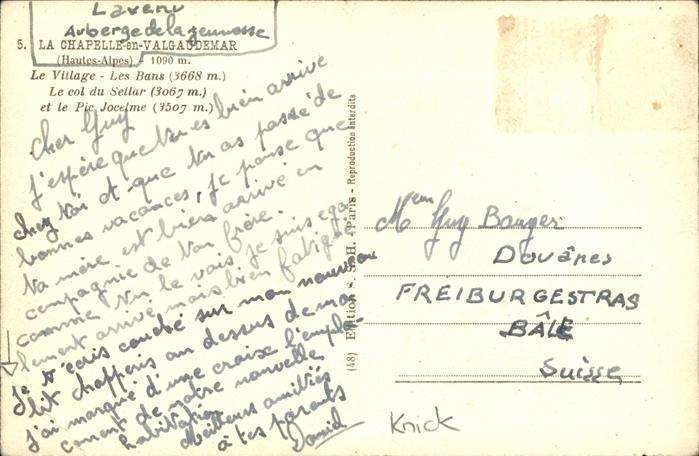 Lavenu
Auberge de la jeunesse
5. LA CHAPELLE-en-VALGAUDEMAR
(Hautes-Alpes) 1090 m.
Le Village - Les Bans (3668 m.)
Le col du Sellar (3067 m.)
et le Pic Jocelme (3507 m.)
cher Guy
j'espère que tu es bien arrivé
chez toi et que tu as passé de
bonnes vacances, je pense que
ta mère est bien arrivé en
compagnie de ton frère.
comme tu le vois je suis ega-
lement arrivé mais bien fatigué
je t'ecris couché sur mon nouveau
lit au dessus de moi
j'ai marqué d'une croix l'empla-
cement de notre nouvelle
habitation
Meilleurs amitiés
à tes parents
Daniel
(48) Edition Paris - Reproduction interdite
Guy Banger
Douânes
FREIBURGESTRAS
BÂLE
Suisse
Knick